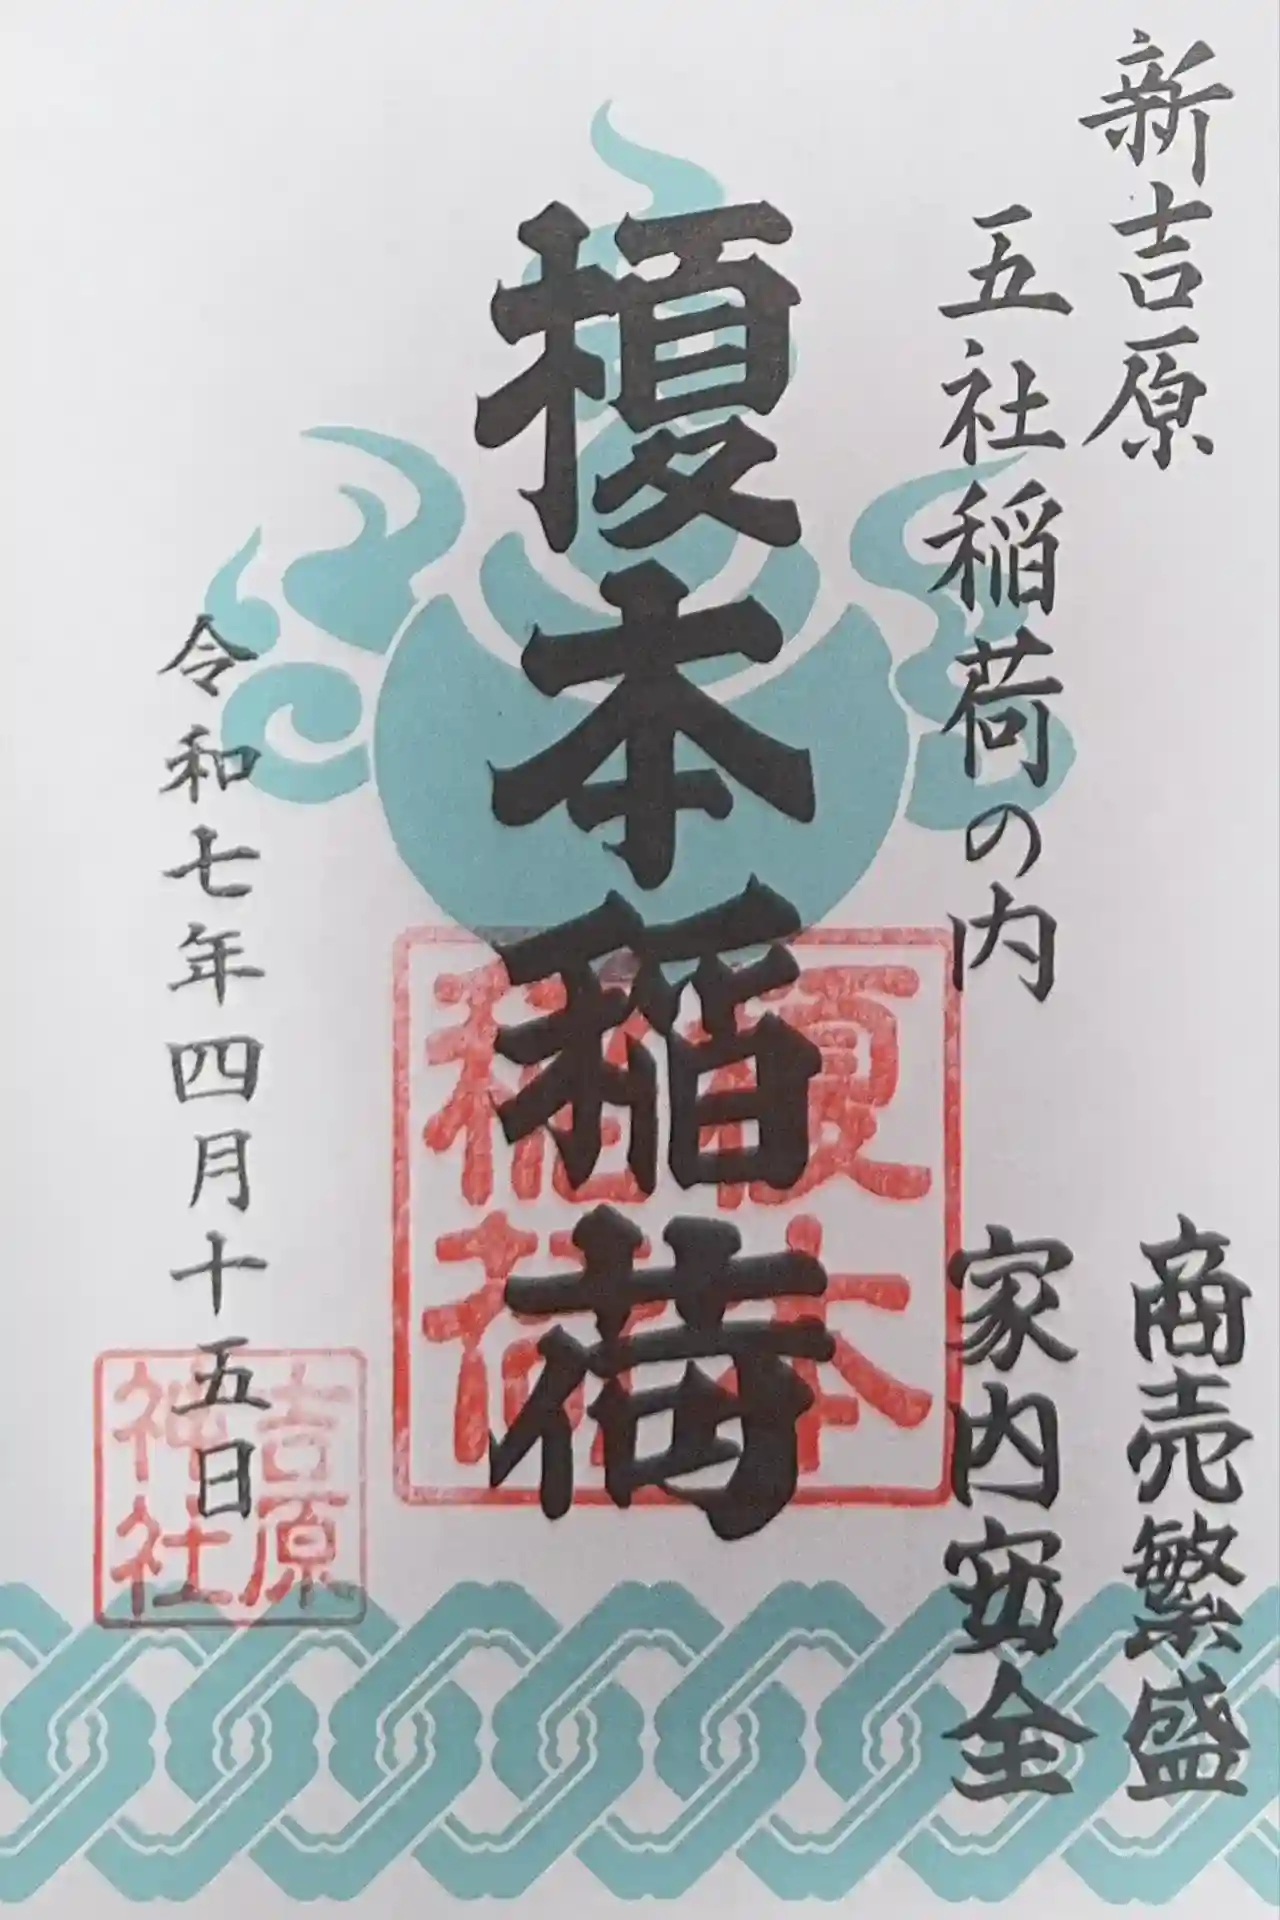 新吉原
五社稲荷の内
商売繁盛
家内安全
榎本稲荷
榎本
稲荷
令和七年四月十五日
吉原
神社